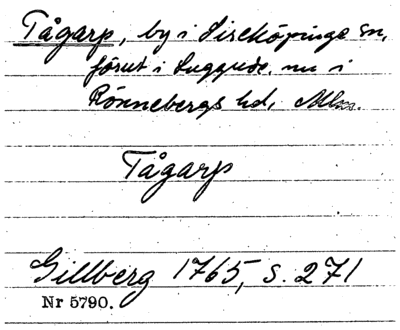 Tågarp, by i Sireköpinge sn,
förut i Luggude, nu i
Rönnebergs hd, Mlm.
Tågarp
Gillberg 1765, s. 271
Nr 5790.